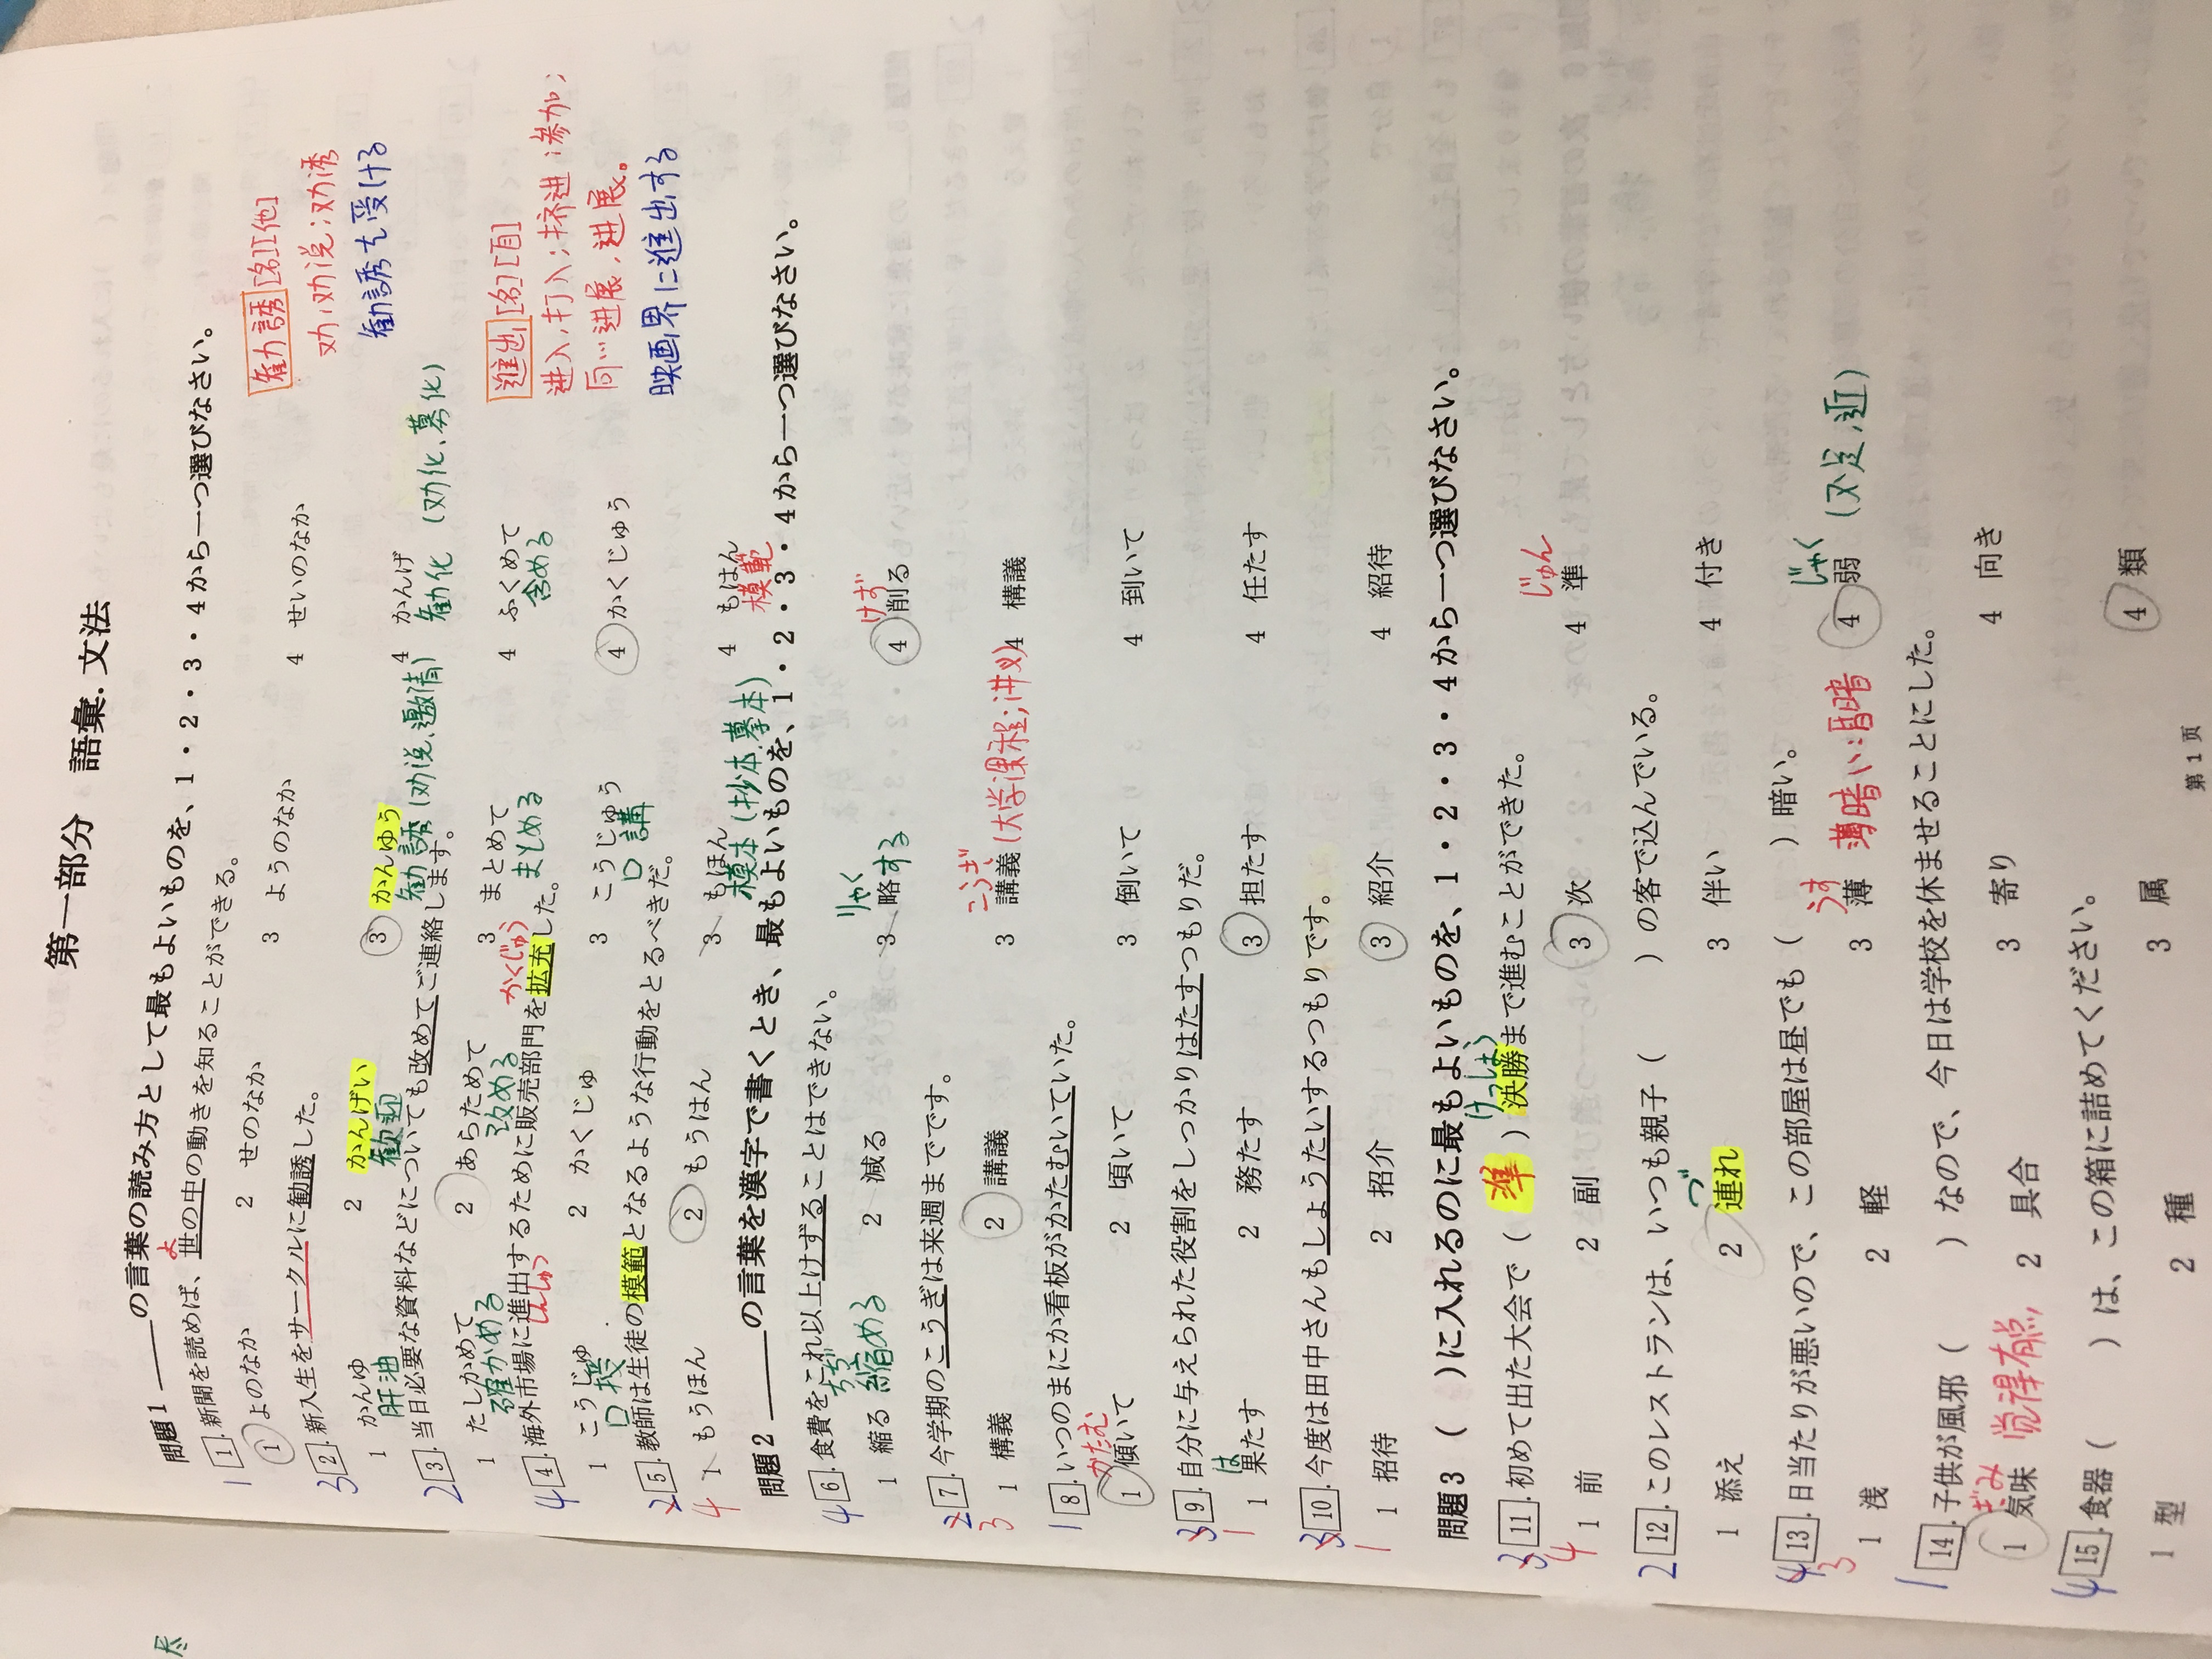 第一部分　語彙.文法
問題1 ＿＿の言葉の読み方として最もよいものを、1・2・3・4から一つ選びなさい。
よ
1 1.新聞を読めば、世の中の動きを知ることができる。
1 よのなか　2 せのなか　3 ようのなか　4 せいのなか
勧誘 [名][他]
劝,劝说;劝诱
勧誘を受ける
3 2.新入生をサークルに勧誘した。
1 かんゆ　2 かんげい　3 かんゆう　4 かんげ
肝油　歓迎　勧誘(劝说,邀请)　勧化 (劝化、募化)
2 3.当日必要な資料などについても改めてご連絡します。
1 たしかめて　2 あらためて　3 まとめて　4 ふくめて
確かめる　改める　まとめる　含める
進出 [名][自]
进入,打入;挤进;参加;
同…进展,进展。
映画界に進出する
かくじゅう
4 4.海外市場に進出するために販売部門を拡充した。
しんしゅつ
1 こうじゅ　2 かくじゅ　3 こうじゅう　4 かくじゅう
口授　口講
2 4 5.教師は生徒の模範となるような行動をとるべきだ。
1 もうほん　2 もうはん　3 もほん　4 もはん
模本(抄本,摹本)　模範
問題2 ＿＿の言葉を漢字で書くとき、最もよいものを、1・2・3・4から一つ選びなさい。
4 6.食費をこれ以上けずることはできない。
ちぢ　りゃく　けず
1 縮る　2 減る　3 略する　4 削る
縮める
2 3 7.今学期のこうぎは来週までです。
こうぎ
1 構義　2 講議　3 講義(大学课程;讲义)　4 構議
1 8.いつのまにか看板がかたむいていた。
かたむ
1 傾いて　2 頃いて　3 倒いて　4 到いて
3 1 9.自分に与えられた役割をしっかりはたすつもりだ。
は
1 果たす　2 務たす　3 担たす　4 任たす
3 1 10.今度は田中さんもしょうたいするつもりです。
1 招待　2 招介　3 紹介　4 紹待
問題3 (　)に入れるのに最もよいものを、1・2・3・4から一つ選びなさい。
けっしょう
3 4 11.初めて出た大会で(準)決勝まで進むことができた。
じゅん
1 前　2 副　3 次　4 準
2 12.このレストランは、いつも親子(　)の客で込んでいる。
づ
1 添え　2 連れ　3 伴い　4 付き
4 3 13.日当たりが悪いので、この部屋は昼でも(　)暗い。
うす　じゃく
1 浅　2 軽　3 薄　4 弱 (不足,近)
薄暗い:昏暗
1 14.子供が風邪(　)なので、今日は学校を休ませることにした。
ぎみ
1 気味 觉得有点,　2 具合　3 寄り　4 向き
4 15.食器(　)は、この箱に詰めてください。
1 型　2 種　3 属　4 類
第1页